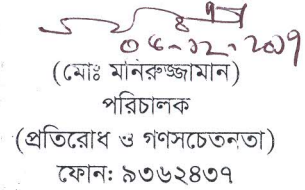 ০৫-১২-২০১৭
(মোঃ মনিরুজ্জামান)
পরিচালক
(প্রতিরোধ ও গণসচেতনতা)
ফোন: ৯৩৬২৪৩৭